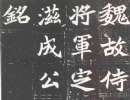 魏故侍
將軍定
滋成公
銘